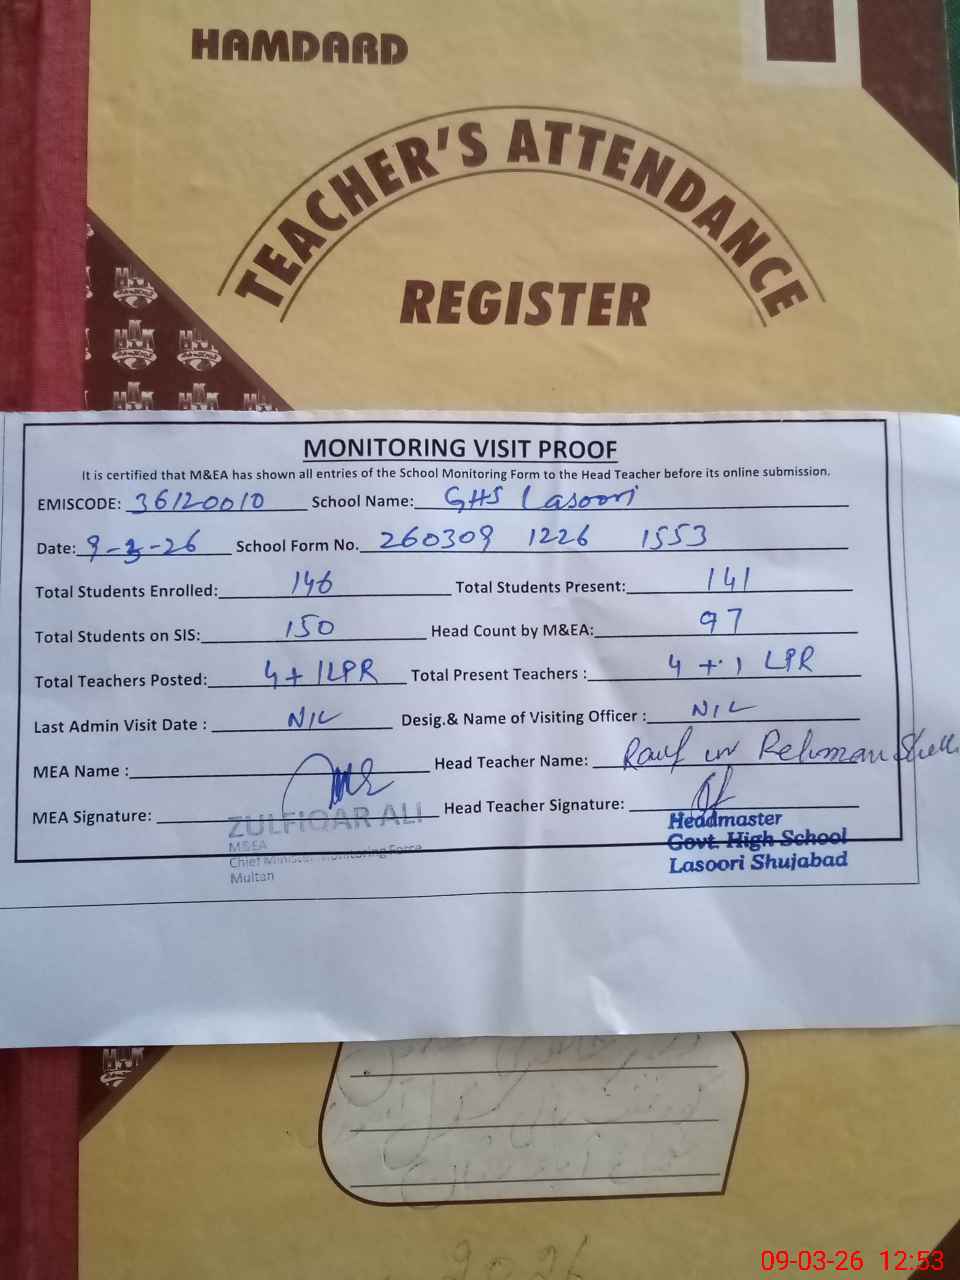 HAMDARD
TEACHER'S ATTENDANCE
REGISTER
MONITORING VISIT PROOF
It is certified that M&EA has shown all entries of the School Monitoring Form to the Head Teacher before its online submission.
EMISCODE: 36120010 School Name: GHS Lasoori
Date: 9-3-26 School Form No. 260309 1226 1553
Total Students Enrolled: 146 Total Students Present: 141
Total Students on SIS: 150 Head Count by M&EA: 97
Total Teachers Posted: 4+1LPR Total Present Teachers : 4 + 1 LPR
Last Admin Visit Date : NIL Desig.& Name of Visiting Officer : NIL
MEA Name : Head Teacher Name: Rauf ur Rehman
MEA Signature: Head Teacher Signature:
ZULFIQAR ALI
M&EA
Chief Minister Monitoring Force
Multan
Headmaster
Govt. High School
Lasoori Shujabad
2026
09-03-26 12:53